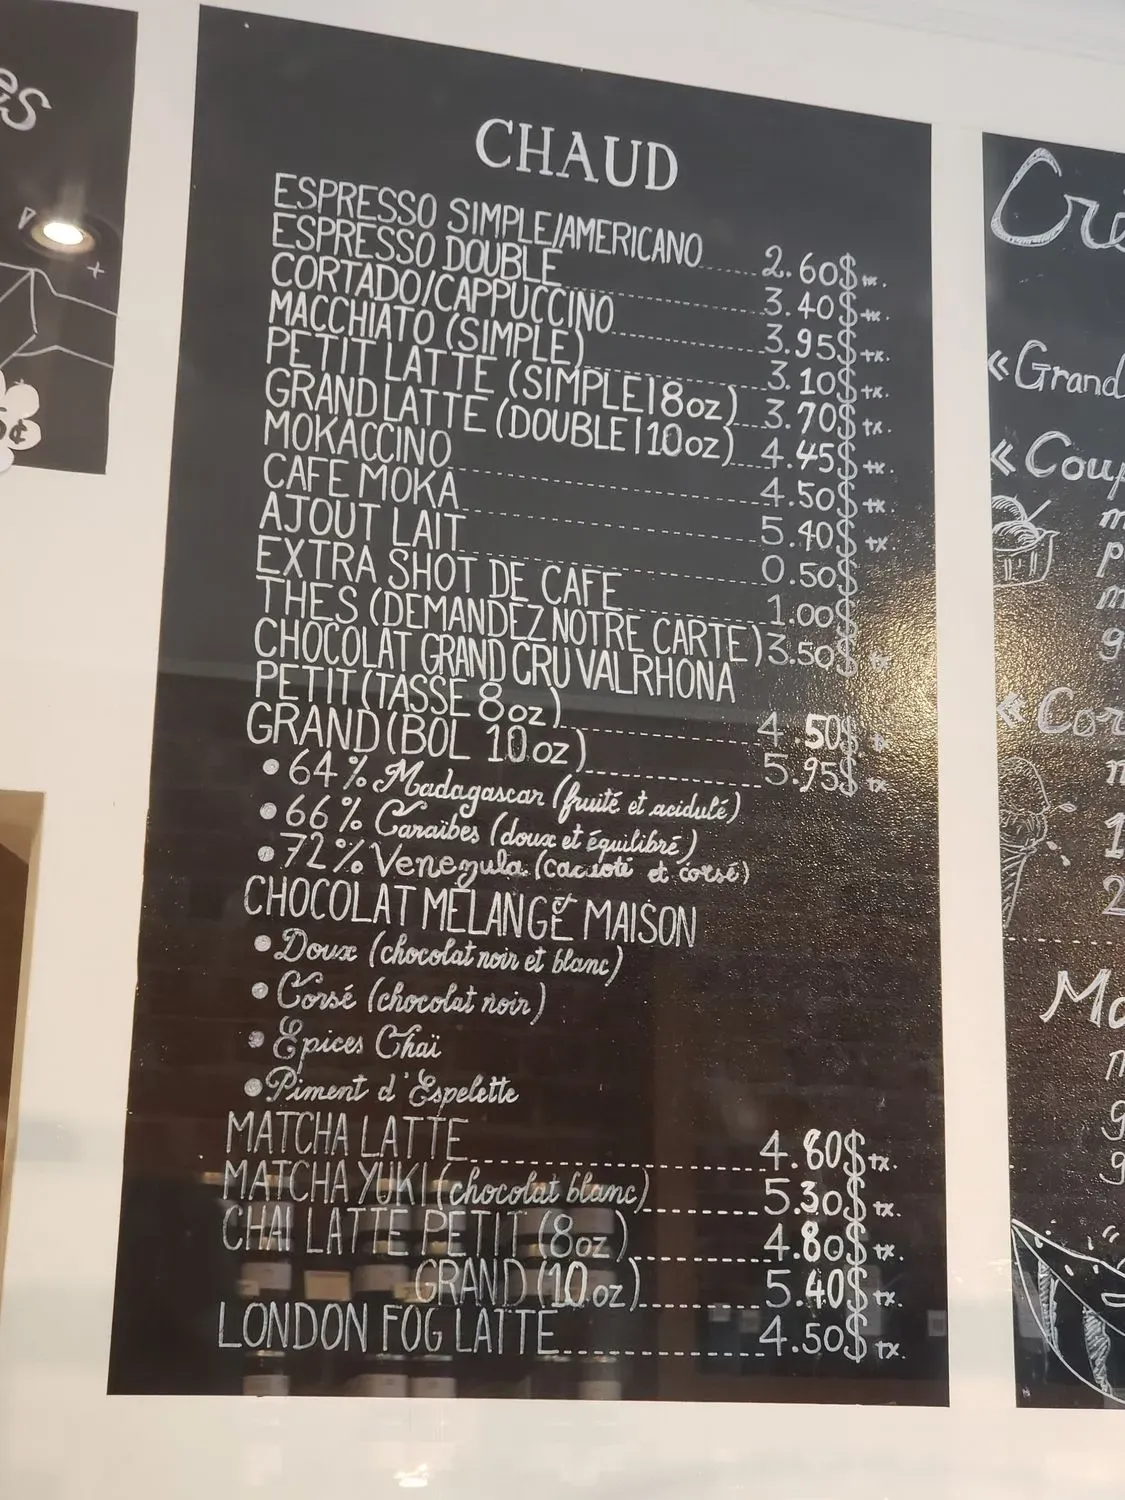 es
¢
CHAUD
ESPRESSO SIMPLE/AMERICANO......2.60$tx.
ESPRESSO DOUBLE 3.40$tx.
CORTADO/CAPPUCCINO 3.95$tx.
MACCHIATO (SIMPLE) 3.10$tx.
PETIT LATTE (SIMPLE|8oz) 3.70$tx.
GRAND LATTE (DOUBLE|10oz) 4.45$tx.
MOKACCINO 4.50$tx.
CAFE MOKA 5.40$tx
AJOUT LAIT 0.50$
EXTRA SHOT DE CAFE 1.00$
THES (DEMANDEZ NOTRE CARTE) 3.50$tx
CHOCOLAT GRAND CRU VALRHONA
PETIT (TASSE 8oz) 4.50$
GRAND (BOL 10oz) 5.95$tx
• 64% Madagascar (fruité et acidulé)
• 66% Caraïbes (doux et équilibré)
• 72% Venezula (cacaoté et corsé)
CHOCOLAT MÉLANGE MAISON
• Doux (chocolat noir et blanc)
• Corsé (chocolat noir)
• Epices Chaï
• Piment d'Espelette
MATCHA LATTE 4.80$tx.
MATCHA YUKI (chocolat blanc) 5.30$tx.
CHAI LATTE PETIT (8oz) 4.80$tx.
GRAND (10oz) 5.40$tx.
LONDON FOG LATTE 4.50$tx.
«Grand
«Coup